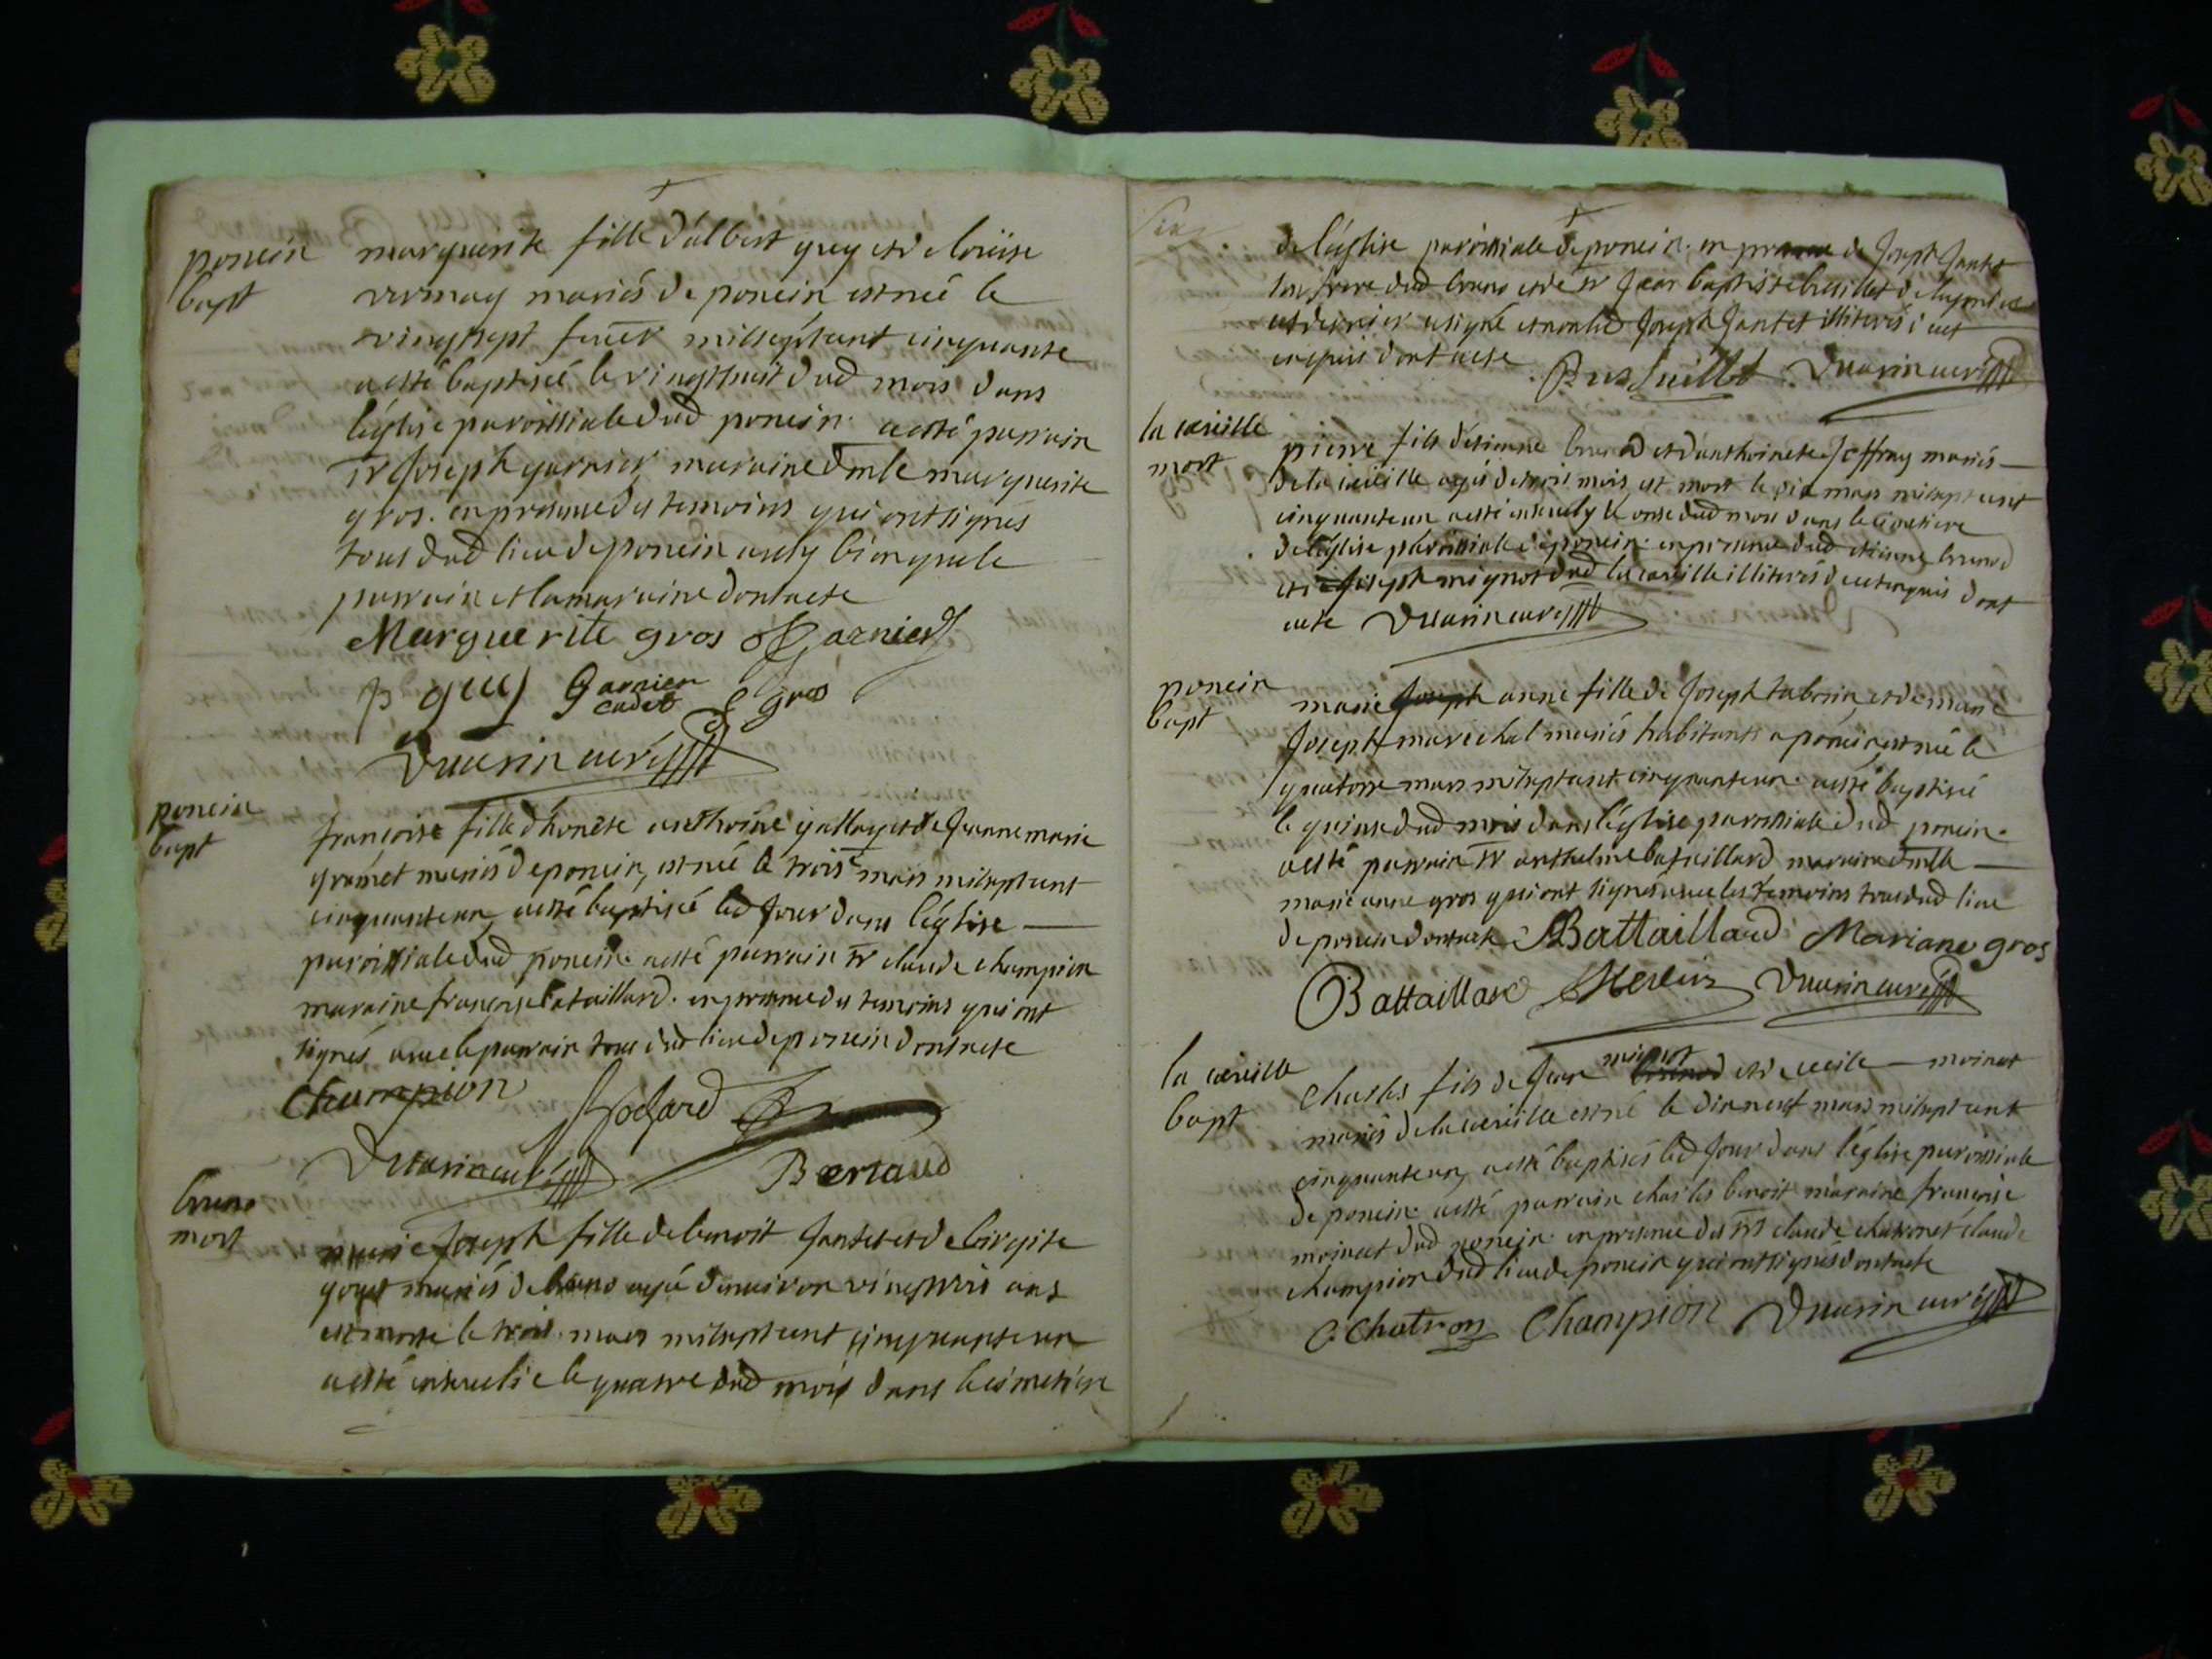 poncin
bapt
marguerite fille d'albert guy et de loüise
vermay mariés de poncin est née le
vingt sept mille sept cent cinquante
a esté baptisée le vingt huit dud mois dans
l'église paroissiale dud poncin. a esté parrain
sr Joseph garnier maraine dmlle marguerite
gros. en presence des temoins qui ont signés
tous dud lieu de poncin aussy bien que le
parrain et la maraine dont acte
Marguerite gros Garnier
guy Garnier cadet gros
Duarin curé
poncin
bapt
françoise fille d'honête anthoine et de Jeanne marie
gramet mariés de poncin, est née le trois mars mil sept cent
cinquante un, a esté baptisée led Jour dans l'église
paroissiale dud poncin. a esté parrain sr claude champion
maraine françoise bataillard. en presence des temoins qui ont
signés avec le parrain tous dud lieu de poncin dont acte
Champion
Duarin curé Bertaud
mort
marie Joseph fille de benoit Jantet et de birgite
goyet mariés de agée d'environ vingt trois ans
est morte le trois mars mil sept cent cinquante un
a esté ensevelie le quatre dud mois dans le cimetiere
de l'église paroissiale de poncin. en presence de Joseph Jantet
son frere dud et de sr Jean baptiste
dernier a signé et non led Joseph Jantet illiterés de cet
enquis dont acte Duarin curé
la cueille
mort
pierre fils d'etienne brunod et d'anthoinete Joffray mariés
de la cueille agés de trois mois est mort le dix mars mil sept cent
cinquante un a esté ensevely le onze dud mois dans le cimetiere
de l'église paroissiale de poncin. en presence dud etienne brunod
et de Joseph mignot dud la cueille illiterés de cet enquis dont
acte Duarin curé
poncin
bapt
marie Joseph anne fille de Joseph taborin et de marie
Joseph marechal mariés habitants a poncin est née le
quatorze mars mil sept cent cinquante un. a esté baptisée
le quinze dud mois dans l'église paroissiale dud poncin.
a esté parrain sr anthelme bataillard maraine dmlle
marie anne gros qui ont signés avec les temoins tous dud lieu
de poncin dont acte Battaillard Mariane gros
Battaillard Duarin curé
la cueille
bapt
Charles fils de Jean mignot brunod et de cecile moinat
mariés de la cueille est né le dix neuf mars mil sept cent
cinquante un, a esté baptisés led Jour dans l'église paroissiale
de poncin. a esté parrain charles benoit maraine françoise
moinat dud poncin. en presence des srs claude chatron et claude
champion dud lieu de poncin qui ont signés dont acte
C Chatron Champion Duarin curé